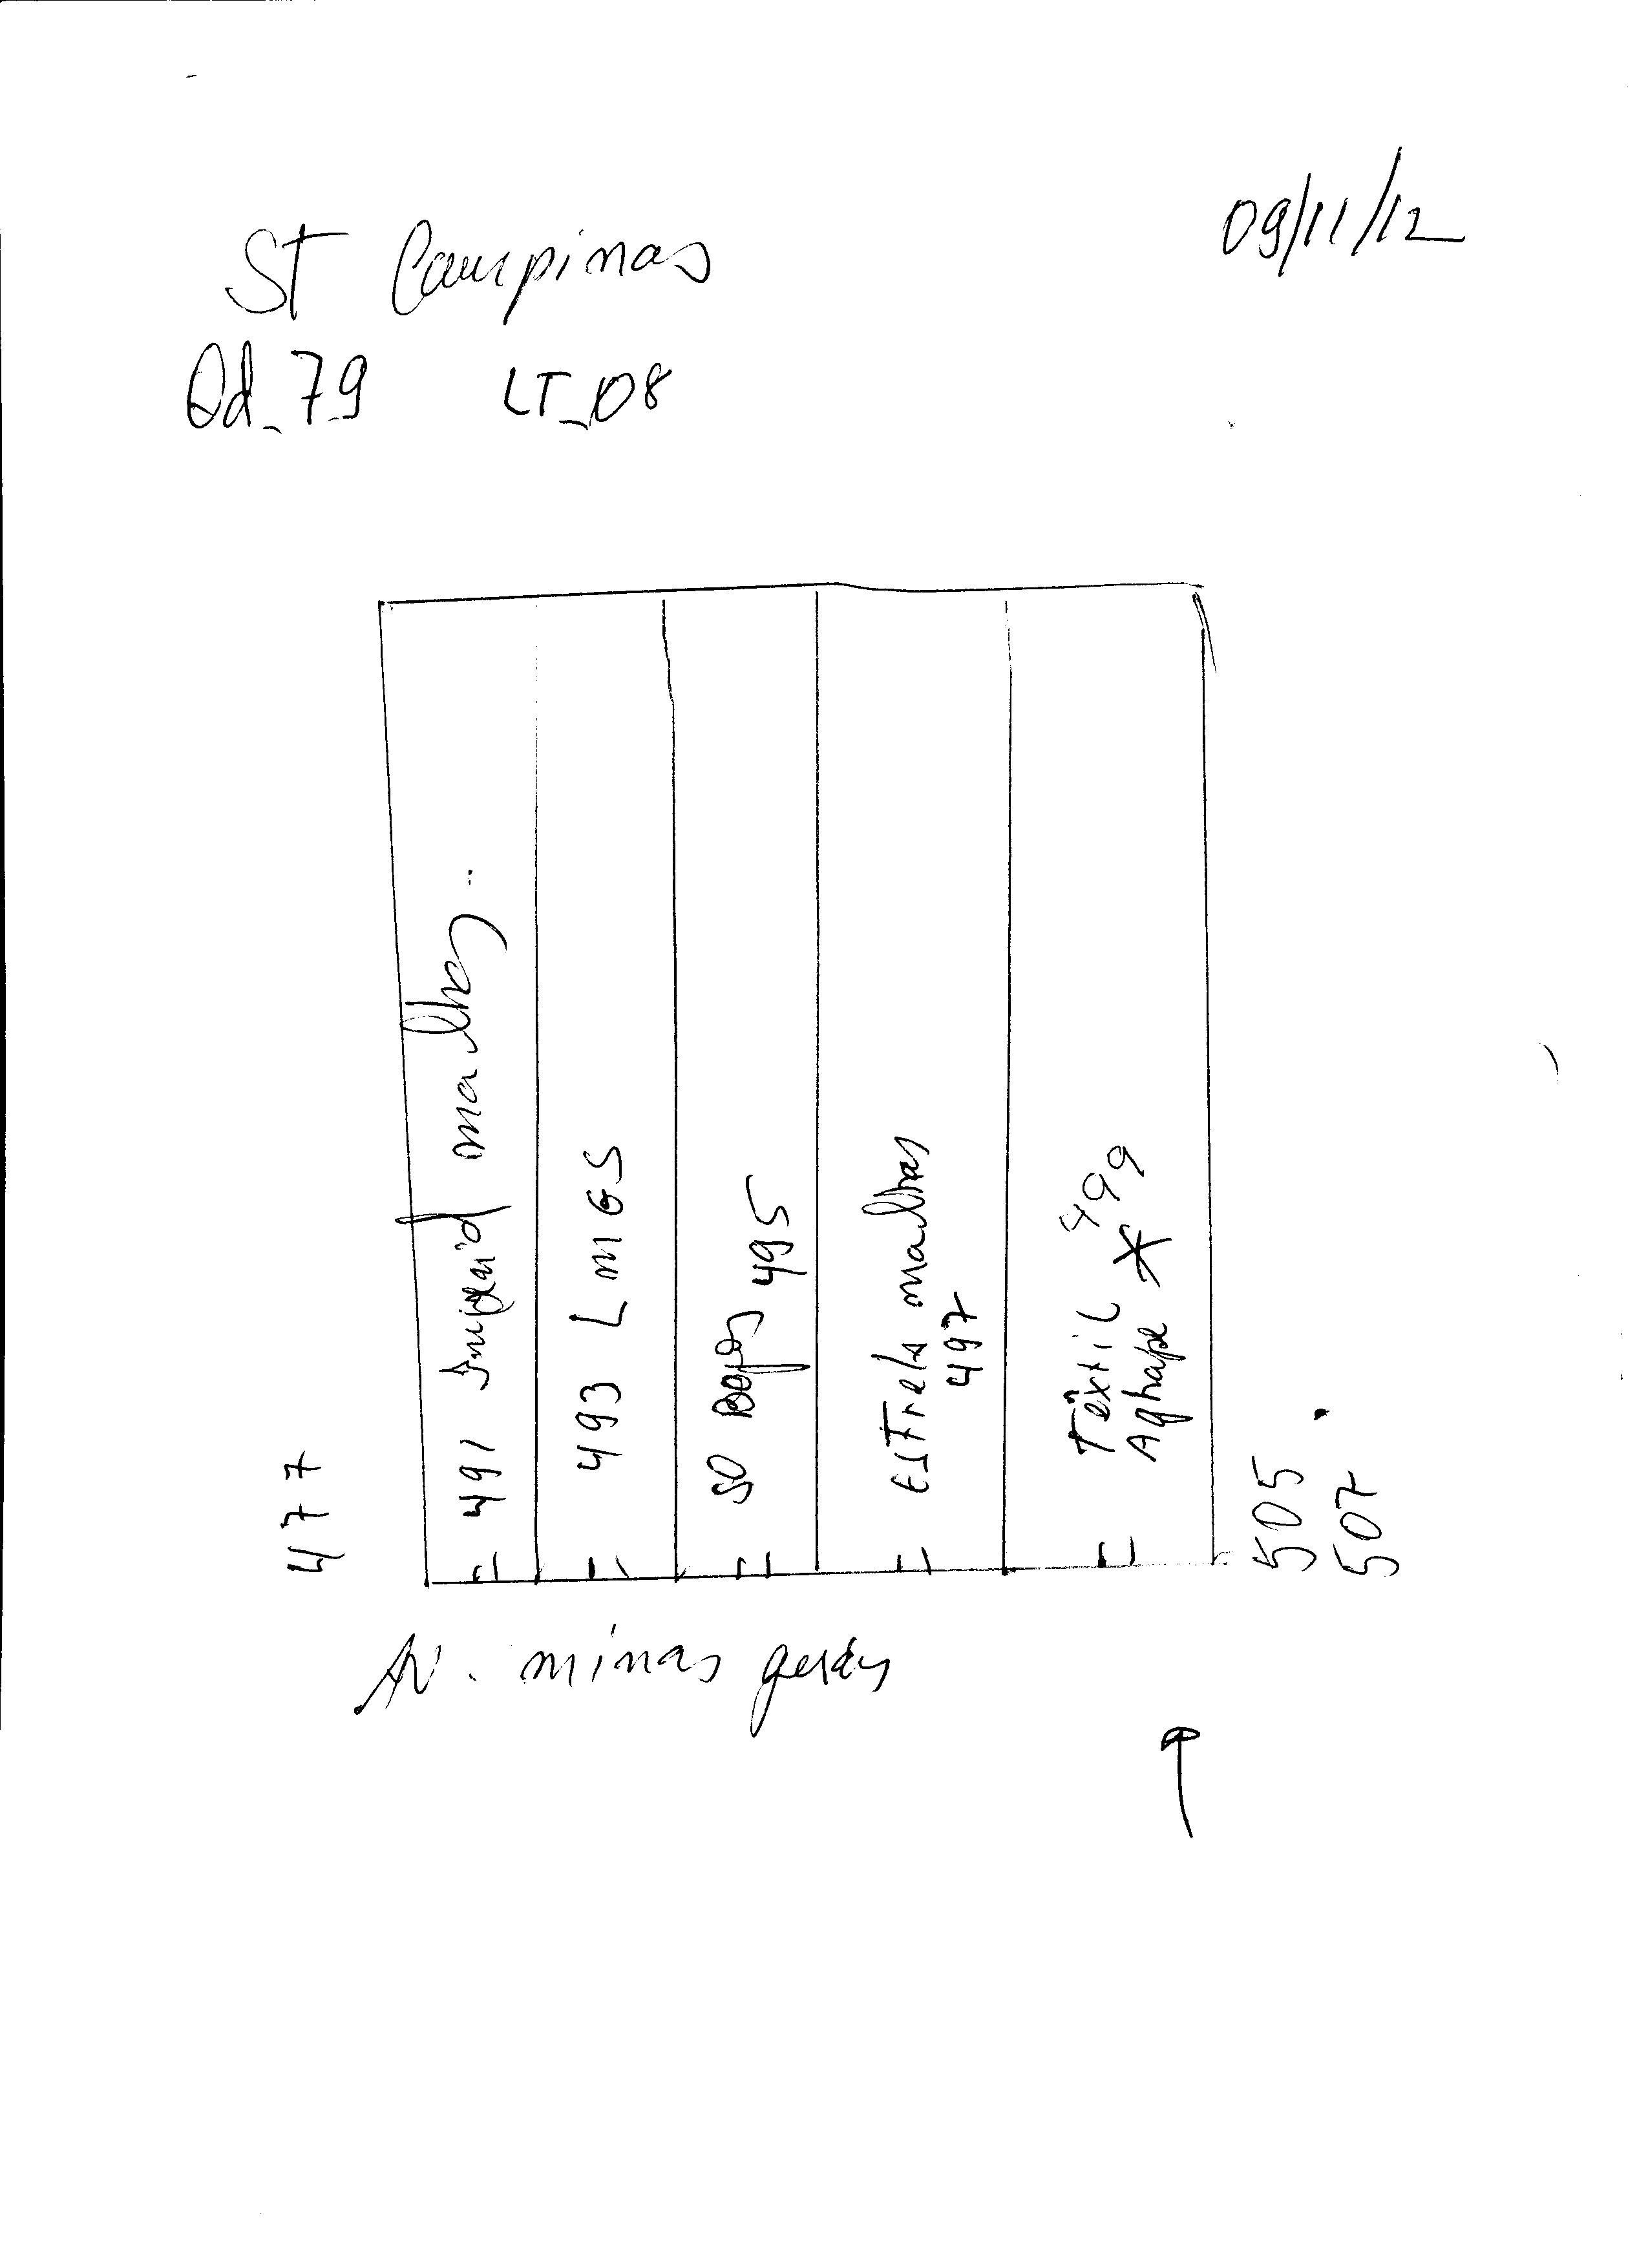 09/11/12
ST Campinas
Qd_79 LT_08
477
491 malhas
493 L m G S
SO 495
Estrela malhas
497
Têxtil
Aghape * 499
505
507
Av. minas gerais